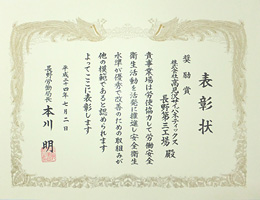 表彰状
奨励賞
株式会社高見沢サイバネティックス
長野第三工場 殿
貴事業場は労使協力して労働安全
衛生活動を活発に推進し安全衛生
水準が優秀で改善のための取組みが
他の模範であると認められます
よってここに表彰します
平成二十四年七月二日
長野労働局長
本川 明